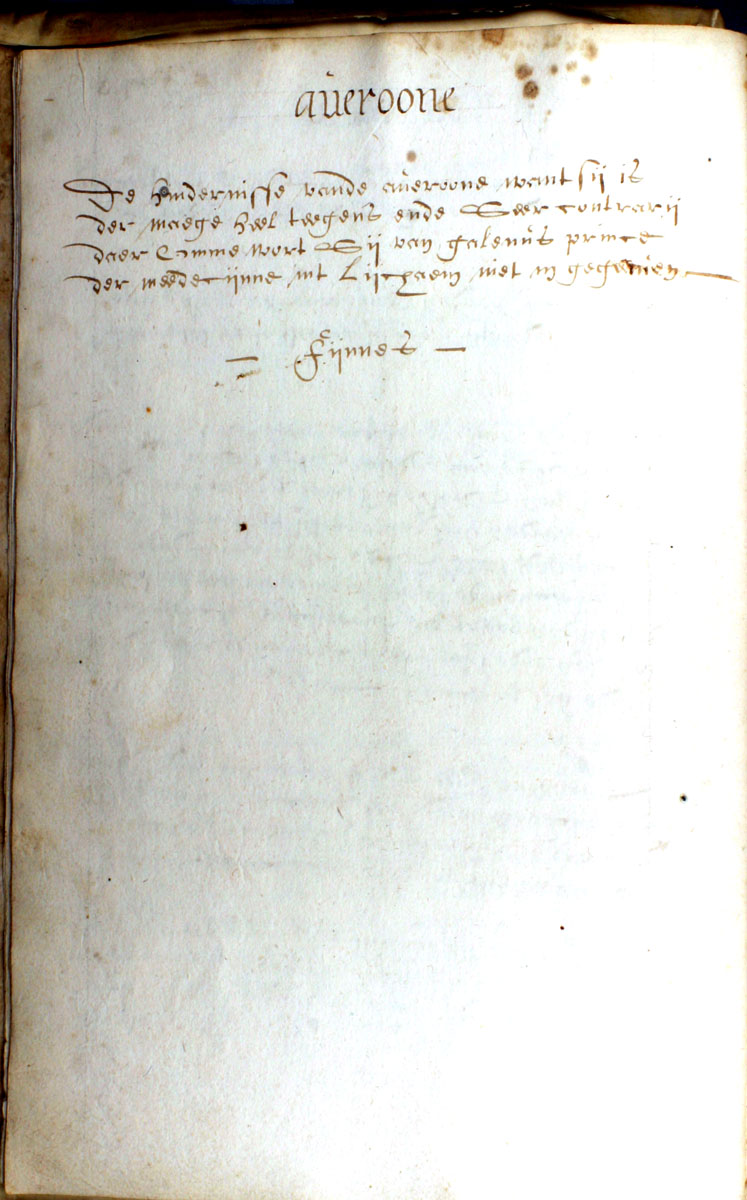 aúeroone
De hindernisse vande aúeroone want sij is
der maege heel teegens ende Seer contrarij
daer Omme wort Sij van galenús prince
der meedecijnne int Lijchaem niet in gegeúen
Fijnnes